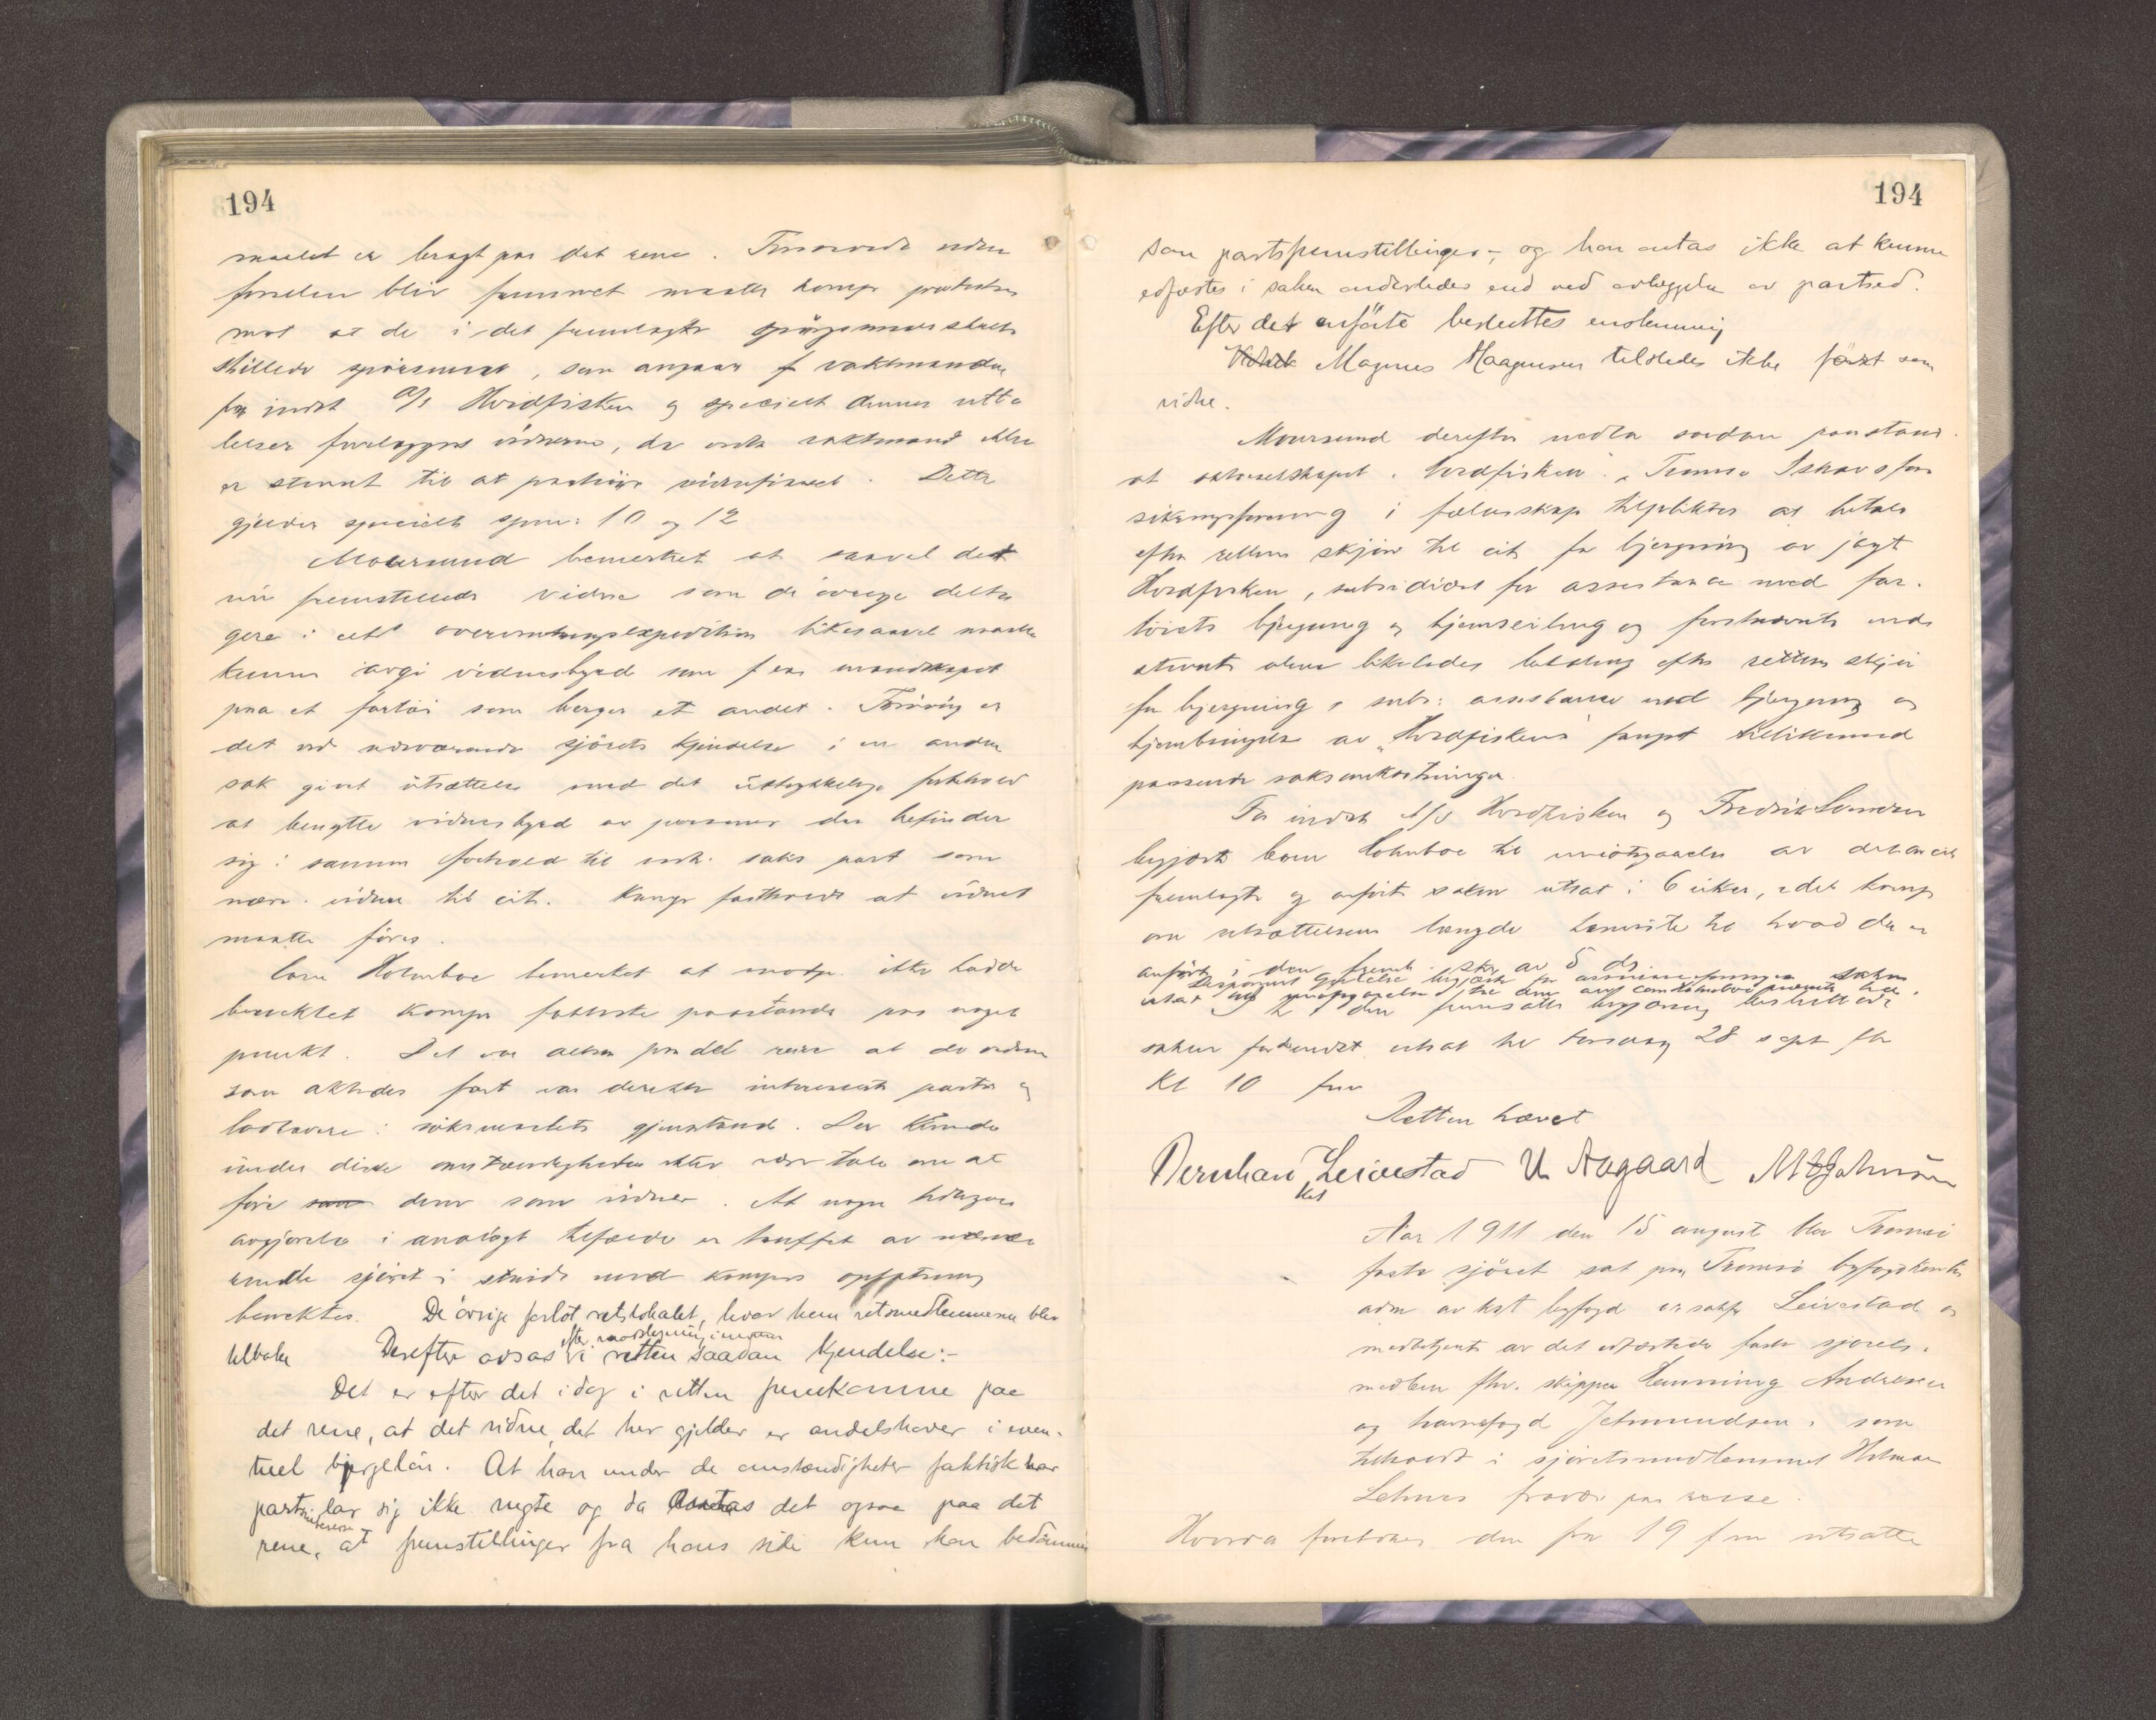 194
maalet er bragt paa det rene. Forsaavidt viden
forselen blir fremmet maatte komp protestere
mot at de i det fremlagte spörsmaalsskrift
stillede spörsmaal, som angaar vaktmanden
for indst A/S Hvidfisken og specielt dennes utta
lelser forelægges vidnerne, da vaktmand ikke
er stevnt til at paahöre vidneförsel. Dette
gjelder specielt spm: 10 og 12
Moursund bemerket at saavel det
nu fremstillede vidne som de övrige delta
gere i overvintringsexpedition likesaavel maatte
kunne avgi vidnesbyrd som f ex mandskapet
paa et fartöi som berger et andet. Forövrig er
det ved nærværende sjörets kjendelse i en anden
sak givet uttrættelse med det forhold
at benytte vidnesbyrd av personer der befinder
sig i samme forhold til saks part som
nærv. vidne til cit. Komp fastholdt at vidnet
maatte föres.
Cand Holmboe bemerket at modp. ikke hadde
benektet komps faktiske paastande paa noget
punkt. Det var altsaa paa det rene at de vidner
som aktedes fört var direkte interessert parter og
lodhavere i söksmaalets gjenstand. Der kunde
under disse omstændigheter ikke være tale om at
före dem som vidner. At nogen tidligere
avgjörelse i analogt tilfælde er truffet av nærvæ
rende sjöret i strid med komps opfatning
benektes. De övrige forlot retslokalet, hvor kun retsmedlemmerne blev
tilbake Derefter avsas i retten saadan kjendelse:-
efter raadslagning i enrum
Det er efter det idag i retten fremkomne paa
det rene, at det vidne det her gjelder er andelshaver i even-
tuel bjergelön. At han under de omstændigheter faktisk har
parts lar sig ikke negte og da det ogsaa paa det
interesse
rene, at fremstillinger fra hans side kun kan bedömmes
194
som partsfremstillinger-, og han antas ikke at kunne
edfæstes i saken anderledes end ved avlæggelse av partsed.
Efter det anförte besluttes enstemmig
Magnus Haagensen tilstedes ikke fört som
vidne.
Moursund derefter nedla saadan paastand
at aktieselskapet Hvidfisken, Tromsö Ishavsfor
sikringsforening i fællesskap tilpliktes at betale
efter rettens skjön til cit for bjergning av jagt
Hvidfisken, subsidiært for assistance med far-
töiets bjergning og hjemseiling og förstnævnte ind
stevnte alene likeledes betaling efter rettens skjön
for bjergning, subs: assistance med bjergning og
hjembringelse av "Hvidfisken"s fangst tillikemed
passende saksomkostninger.
For indst A/S Hvidfisken og Fredrik
begjærte Cand Holmboe til imötegaaelse av det av cit
fremlagte og anförte saken utsat i 6 uker, idet komp
om utsættelsens længde henviste til hvad der er
anfört i den fremlagte skr av 5 ds
saken
utsat
den fremsatte begjæring besluttedes
saken forderunder utsat til torsdag 28 sept förstk
Kl 10 fm
Retten hævet
Bernhard Leivestad U. Aagaard M Johnsen
kst
Aar 1911 den 15 august blev Tromsö
faste sjöret sat paa Tromsö byfogdkontor
adm av kst byfogd Leivestad og
medbetjent av det edfæstede faste sjörets-
medlem fhv. skipper Henning Andresen
og havnefogd Jetmundsen, som
tilkaldt i sjöretsmedlemmet Hilmar
Lehnes fravær paa reise.
Hvorda foretokes den fra 19 f m utsatte